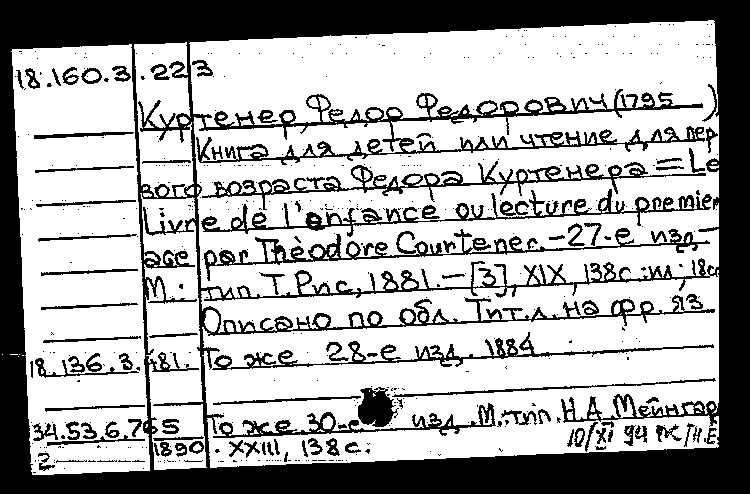 18.160.3.223
Куртенер, Федор Федорович (1795 )
Книга для детей или чтение для пер
вого возраста Федора Куртенера = Le
Livre de l'enfance ou lecture du premier
age par Thèodore Courtener. - 27-е изд. -
М.: тип. Т. Рис, 1881. - [3], XIX, 138 с.: ил.; 18 см
Описано по обл. Тит. л. на фр. яз.
18.136.3.481. То же 28-е изд. 1884
34.53.6.765 То же. 30-е изд. М.: тип. Н.А. Мейнгар
2 1890. XXIII, 138 с.
10/XI 94